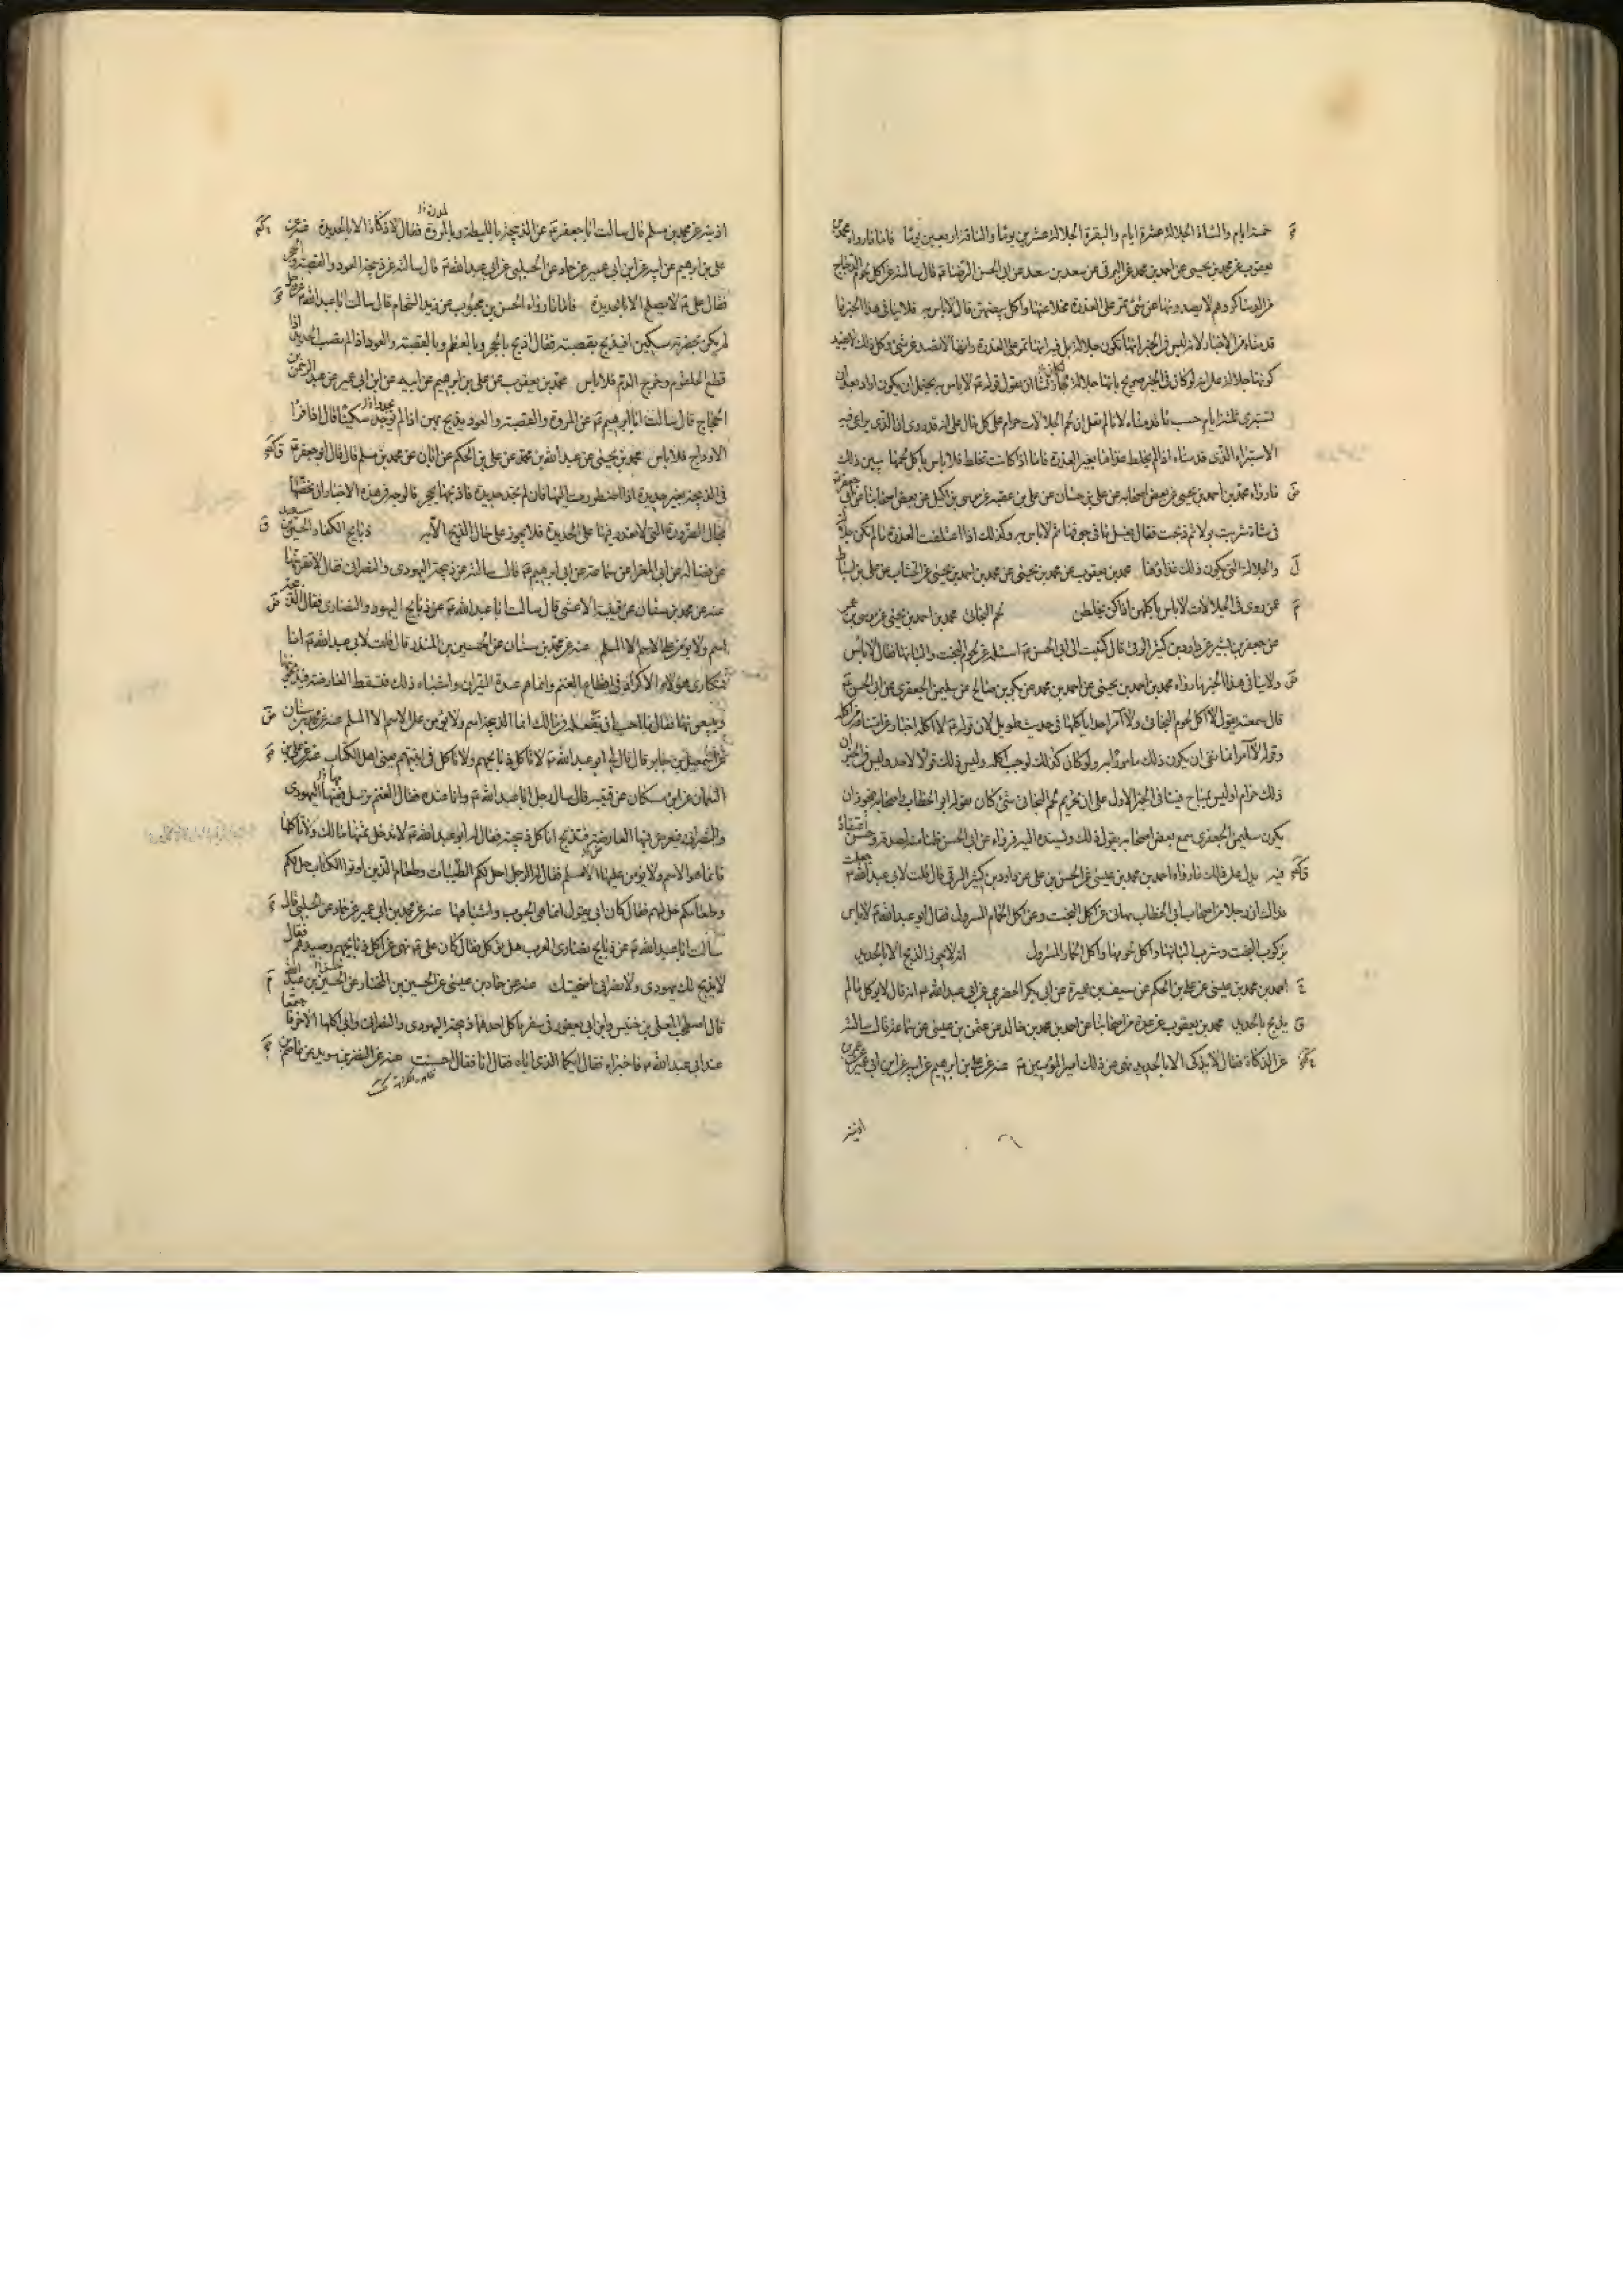 خمسة ايام والشاة الجلالة عشرة ايام والبقرة الجلالة عشرين يوما والناقة اربعين يوما فاما ما رواه محمد بن
يعقوب عن محمد بن يحيى عن احمد بن محمد عن البرقى عن سعد بن سعد عن ابى الحسن الرضا ع قال سالته عن اكل لحوم الدجاج
من الدساكر وهم لا يصدونها عن شئ تمر على العذرة مخلا عنها واكل بيضهن قال لا باس به فلا ينافى هذا الخبر ما
قدمناه من الاخبار لانه ليس فى الخبر انها تكون جلالة بل فيه انها تمر على العذرة وكل ذلك لا يفيد
كونها جلالة على انه لو كان فى الخبر صريح بانها جلالة ان يقول قوله ع لا باس به يحتمل ان يكون اراد بعد ان
تستبرى ثلثة ايام حسب ما قدمناه لانا لم نقل ان لحم الجلالات حرام على كل حال على انه قد روى ان الذى يراعى فيه
الاستبراء الذى قدمناه اذا لم يخلط غذاها بغير العذرة فاما اذا كانت تخلط فلا باس باكل لحمها يبين ذلك
ما رواه محمد بن احمد بن يحيى عن بعض اصحابه عن على بن حسان عن على بن عقبة عن موسى بن اكيل عن بعض اصحابنا عن ابى جعفر ع
فى شاة شربت بولا ثم ذبحت فقال يغسل ما فى جوفها ثم لا باس به وكذلك اذا اعتلفت العذرة ما لم تكن جلالة
والجلالة التى يكون ذلك غذاؤها محمد بن يعقوب عن محمد بن يحيى عن محمد بن احمد بن يحيى عن الخشاب عن على بن اسباط
عمن روى فى الجلالات لا باس باكلهن اذا كن يخلطن لحم البخاتى محمد بن احمد بن يحيى عن موسى بن عمر
عن جعفر بن بشير عن داود بن كثير الرقى قال كتبت الى ابى الحسن ع اسئله عن لحوم البخت والبانها فقال لا باس
ولا ينافى هذا الخبر ما رواه محمد بن احمد بن يحيى عن احمد بن محمد عن بكر بن صالح عن سليمن الجعفرى عن ابى الحسن ع
قال سمعته يقول لا آكل لحوم البخاتى ولا آمر احدا باكلها فى حديث طويل لان قوله ع لا اكله اخبار عن امتناعه من اكله
وقوله لا آمر انما نفى ان يكون ذلك مامورا به ولو كان كذلك لوجب اكله وليس ذلك قولا لاحد وليس فى الخبر ان
ذلك حرام او ليس بمباح فينافى الخبر الاول على ان تحريم لحم البخاتى شئ كان يقوله ابو الخطاب واصحابه فيجوز ان
يكون سليمن الجعفرى سمع بعض اصحابه يقول ذلك ويسنده اليه فرواه عن ابى الحسن ظنا منه لصدقه وحسن اعتقاده
فيه يدل على ذلك ما رواه احمد بن محمد بن عيسى عن الحسن بن على عن داود بن كثير الرقى قال قلت لابى عبدالله ع جعلت
فداك ان رجلا من اصحاب ابى الخطاب نهانى عن اكل البخت وعن اكل الحمام المسرول فقال ابو عبدالله ع لا باس
بركوب البخت وشرب البانها واكل لحومها واكل الحمام المسرول انه لا يجوز الذبح الا بالحديد
احمد بن محمد بن عيسى عن على بن الحكم عن سيف بن عميرة عن ابى بكر الحضرمى عن ابى عبدالله ع انه قال لا يوكل ما لم
يذبح بالحديد محمد بن يعقوب عن عدة من اصحابنا عن احمد بن محمد بن خالد عن عثمن بن عيسى عن سماعة قال سالته
عن الذكاة فقال لا يذكى الا بالحديد نهى عن ذلك امير المؤمنين ع عنه عن على بن ابرهيم عن ابيه عن ابن ابى عمير عن عمر بن
اذينه
اذينة عن محمد بن مسلم قال سالت ابا جعفر ع عن الذبيحة بالليطة وبالمروة فقال لا ذكاة الا بالحديد عنه عن
على بن ابرهيم عن ابيه عن ابن ابى عمير عن حماد عن الحلبى عن ابى عبدالله ع قال سالته عن ذبيحة العود والحجر والقصبة
فقال على ع لا يصلح الا بالحديد فاما ما رواه الحسن بن محبوب عن زيد الشحام قال سالت ابا عبدالله ع عن رجل
لم يكن بحضرته سكين افيذبح بقصبة فقال اذبح بالحجر وبالعظم وبالقصبة والعود اذا لم تصب الحديد اذا
قطع الحلقوم وخرج الدم فلا باس محمد بن يعقوب عن على بن ابرهيم عن ابيه عن ابن ابى عمير عن عبد الرحمن بن
الحجاج قال سالت ابا ابرهيم ع عن المروة والقصبة والعود يذبح بهن اذا لم يجدوا سكينا قال اذا فرا
الاوداج فلا باس محمد بن يحيى عن عبدالله بن محمد عن على بن الحكم عن ابان عن محمد بن مسلم قال قال ابو جعفر ع
فى الذبيحة بغير حديدة اذا اضطررت اليها فان لم تجد حديدة فاذبحها بحجر فالوجه فى هذه الاخبار ان نخصها
بحال الضرورة التى لا نقدر فيها على الحديدة فلا يجوز على حال الذبح الا به ذبايح الكفار الحسين بن سعيد
عن فضالة عن ابى المغرا عن سماعة عن ابى ابرهيم ع قال سالته عن ذبيحة اليهودى والنصرانى فقال لا تقربنها
عنه عن محمد بن سنان عن قتيبة الاعشى قال سالت ابا عبدالله ع عن ذبايح اليهود والنصارى فقال الذبيحة
اسم ولا يومن على الاسم الا المسلم عنه عن محمد بن سنان عن الحسين بن المنذر قال قلت لابى عبدالله ع انا
نتكارى هولاء الاكراد فى اقطاع الغنم وانما هم عبدة النيران واشباه ذلك فتسقط العارضة فيذبحونها
ويبيعونها فقال ما احب ان تفعله فى مالك انما الذبيحة اسم ولا يومن على الاسم الا المسلم عنه عن محمد بن سنان
عن اسمعيل بن جابر قال قال لى ابو عبدالله ع لا تاكل ذبايحهم ولا تاكل فى آنيتهم يعنى اهل الكتاب عنه عن على بن
النعمان عن ابن مسكان عن قتيبة قال سال رجل ابا عبدالله ع وانا عنده فقال الغنم نرسل فيها اليهودى
والنصرانى فيعرض فيها العارضة فتذبح اناكل ذبيحته فقال له ابو عبدالله ع لا تدخل ثمنها مالك ولا تاكلها
فانما هو الاسم ولا يومن عليها الا مسلم فقال له الرجل احل لكم الطيبات وطعام الذين اوتوا الكتاب حل لكم
وطعامكم حل لهم فقال كان ابى يقول انما هى الحبوب واشباهها عنه عن محمد بن ابى عمير عن حماد عن الحلبى قال
سالت ابا عبدالله ع عن ذبايح نصارى العرب هل توكل فقال كان على ع نهى عن اكل ذبايحهم وصيدهم فقال
لا يذبح لك يهودى ولا نصرانى اضحيتك عنه عن حماد بن عيسى عن الحسين بن المختار عن الحسين بن عبد الله
قال اصطحب المعلى بن خنيس وابن ابى يعفور فى سفر فاكل احدهما ذبيحة اليهودى والنصرانى وابى اكلها الاخر فاجتمعا
عند ابى عبدالله ع فاخبراه فقال ايكما الذى اباه فقال انا فقال احسنت عنه عن النضر بن سويد عن عاصم بن